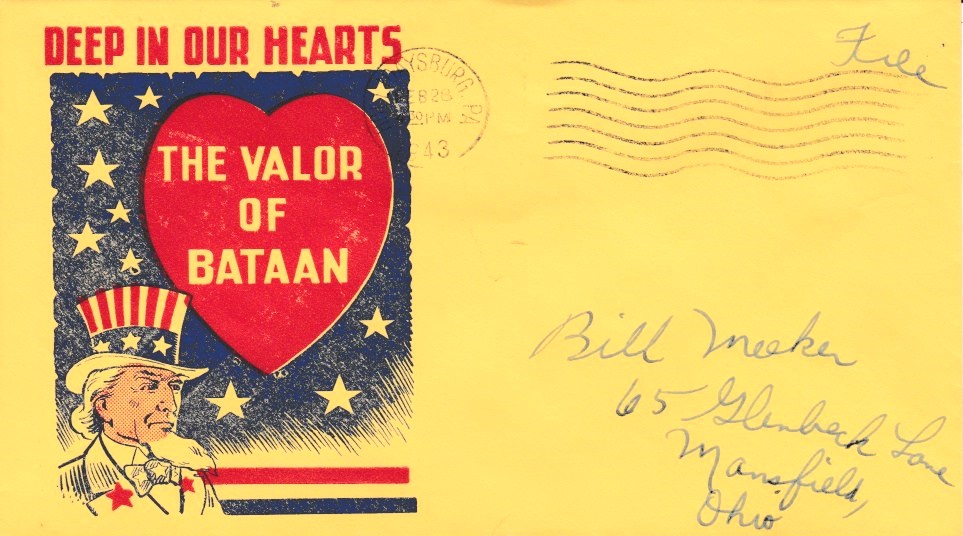 DEEP IN OUR HEARTS
THE VALOR
OF
BATAAN
YSBURG, PA
EB 28
PM
43
Free
Bill Meeker
65 Glenbeck Lane
Mansfield,
Ohio